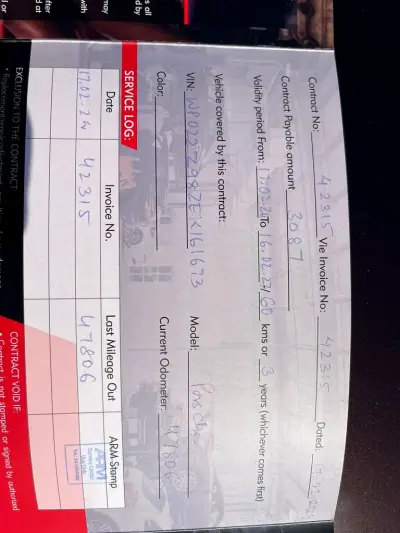 Contract No: 42315 Vie Invoice No: 42315 Dated
Contract Payable amount 3087
Validity period From: 17.02.24 To 16.02.27/ 60 kms or 3 years (whichever comes first)
Vehicle covered by this contract:
VIN: Model: Porsche
Color: Current Odometer: 47806
SERVICE LOG:
Date Invoice No. Last Mileage Out ARM-Stamp
17.02.24 42315 47806
ARM
EXCLUSION TO THE CONTRACT:
CONTRACT VOID IF:
• Contract is not stamped or signed by authorized